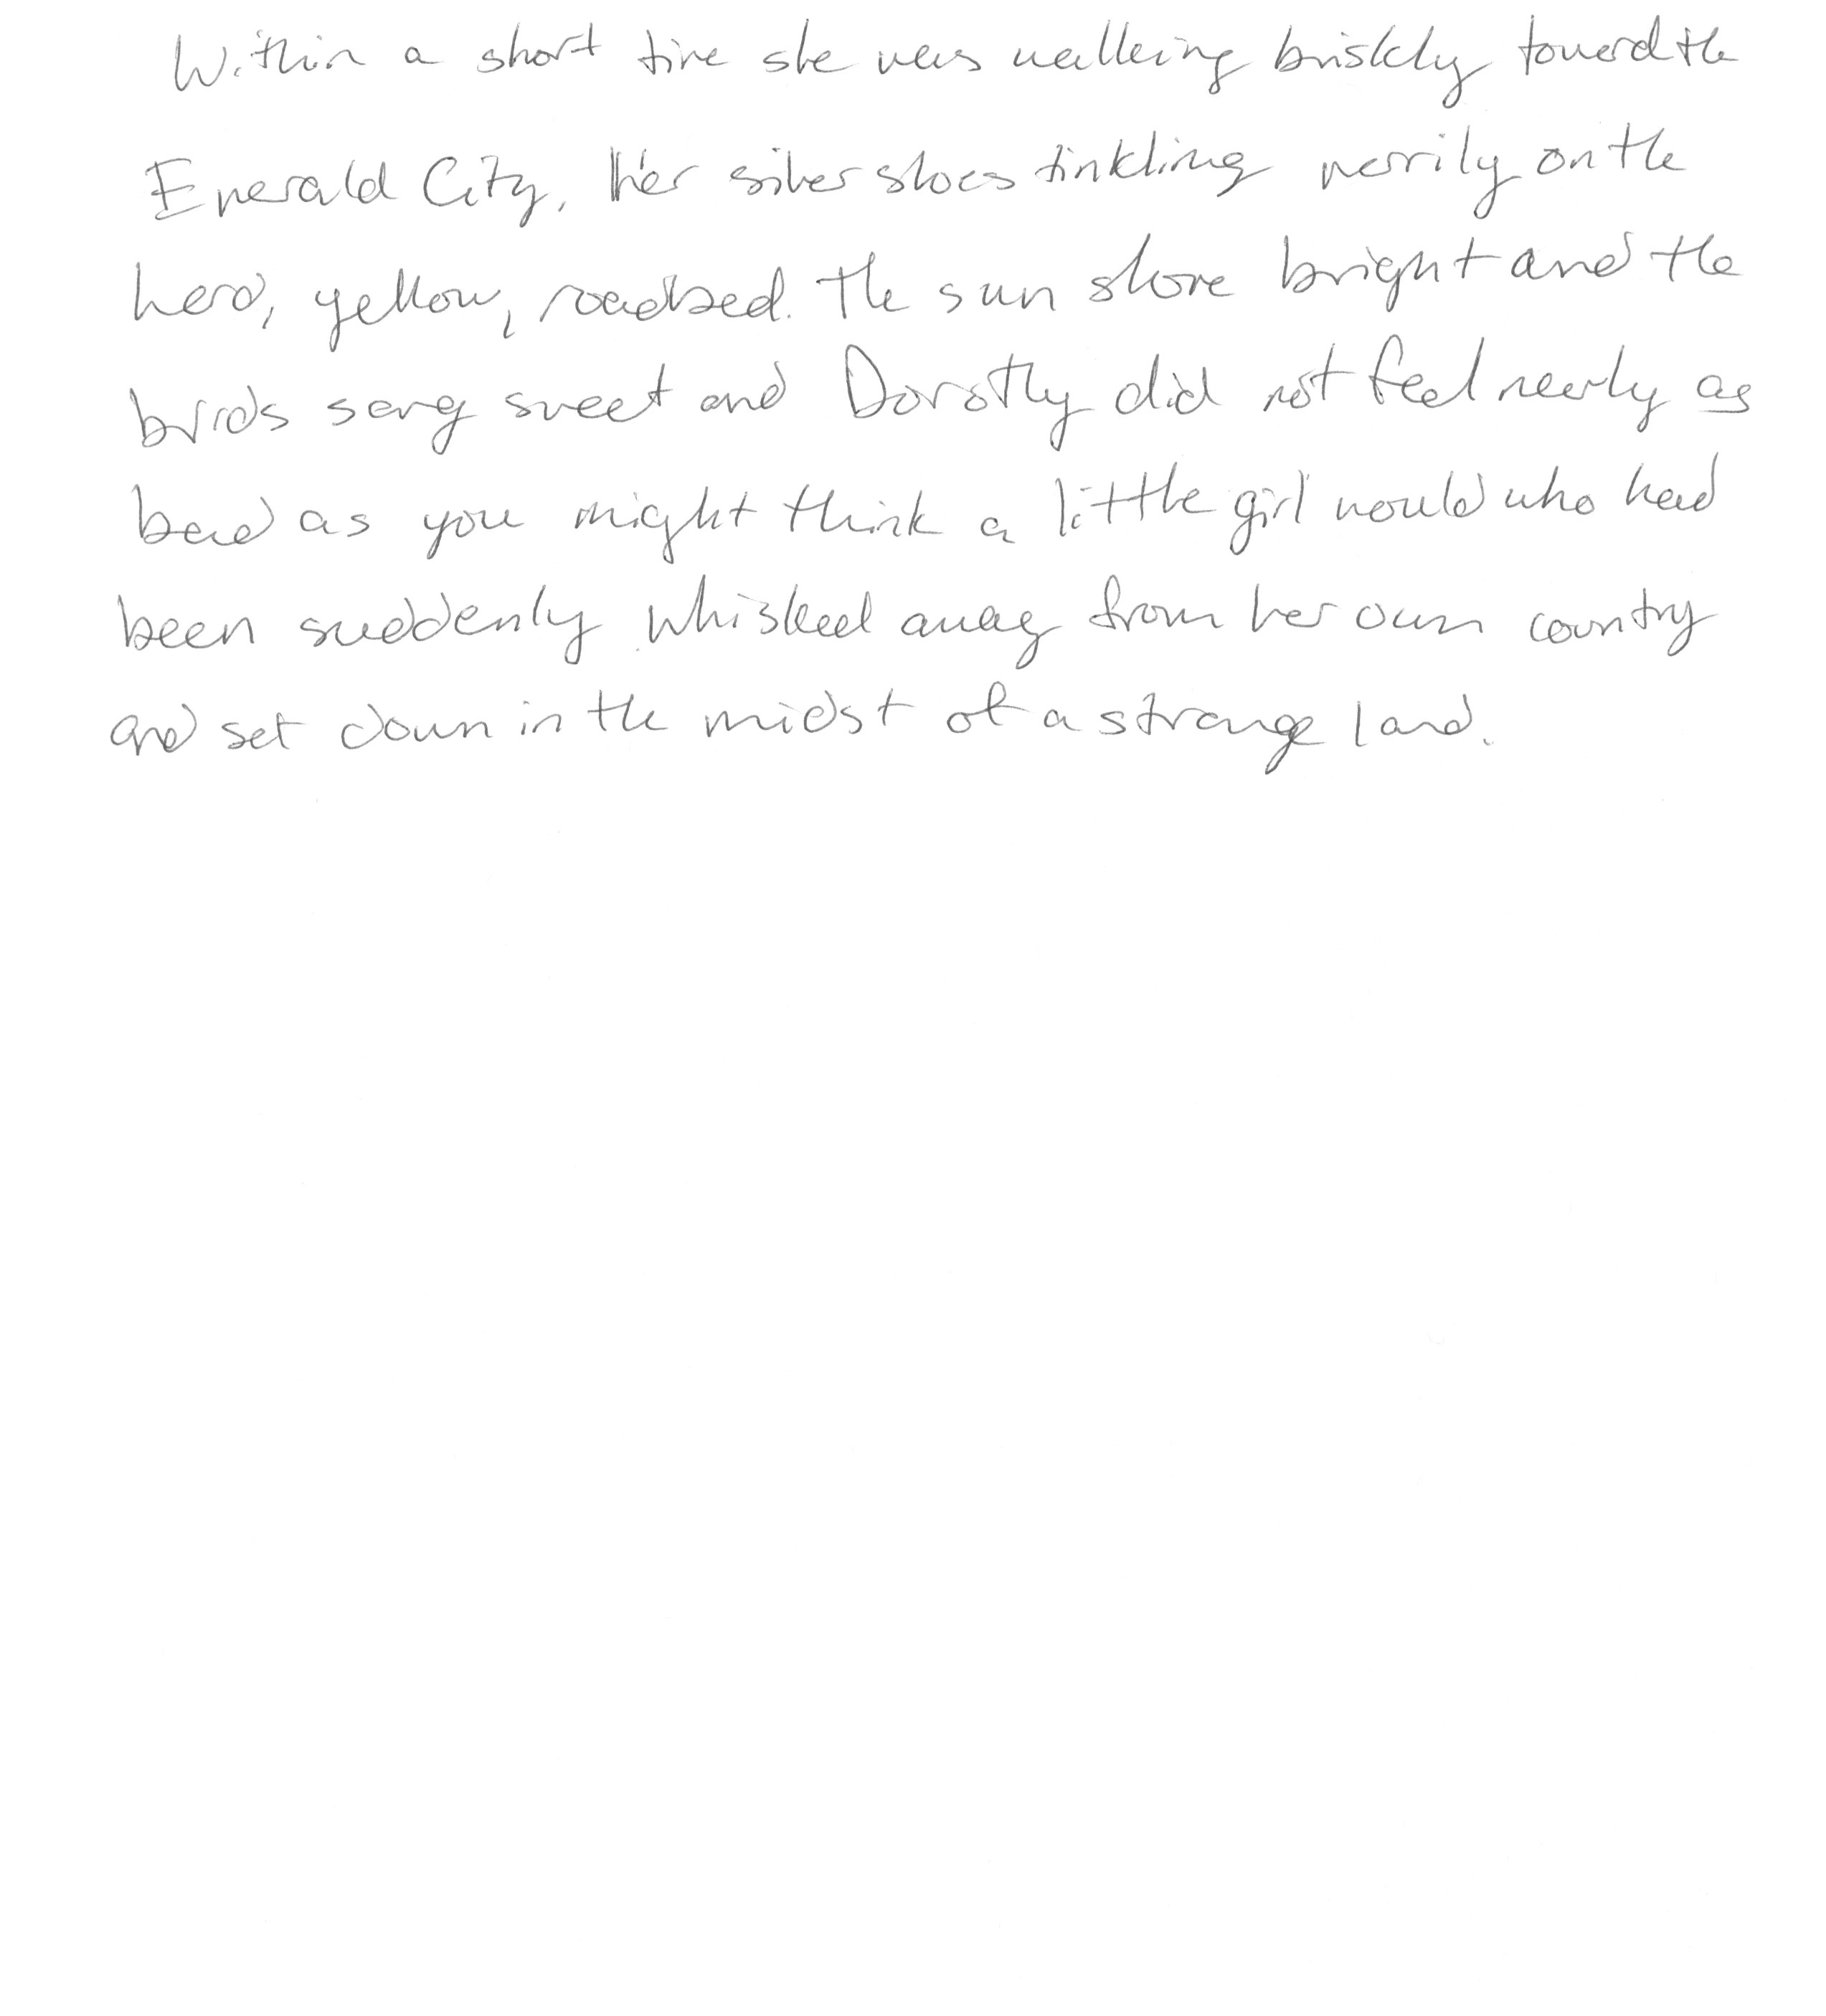 Within a short time she was walking briskly toward the
Emerald City, her silver shoes tinkling merrily on the
hard, yellow, roadbed. The sun shone bright and the
birds sang sweet and Dorothy did not feel nearly as
bad as you might think a little girl would who had
been suddenly whisked away from her own country
and set down in the midst of a strange land.